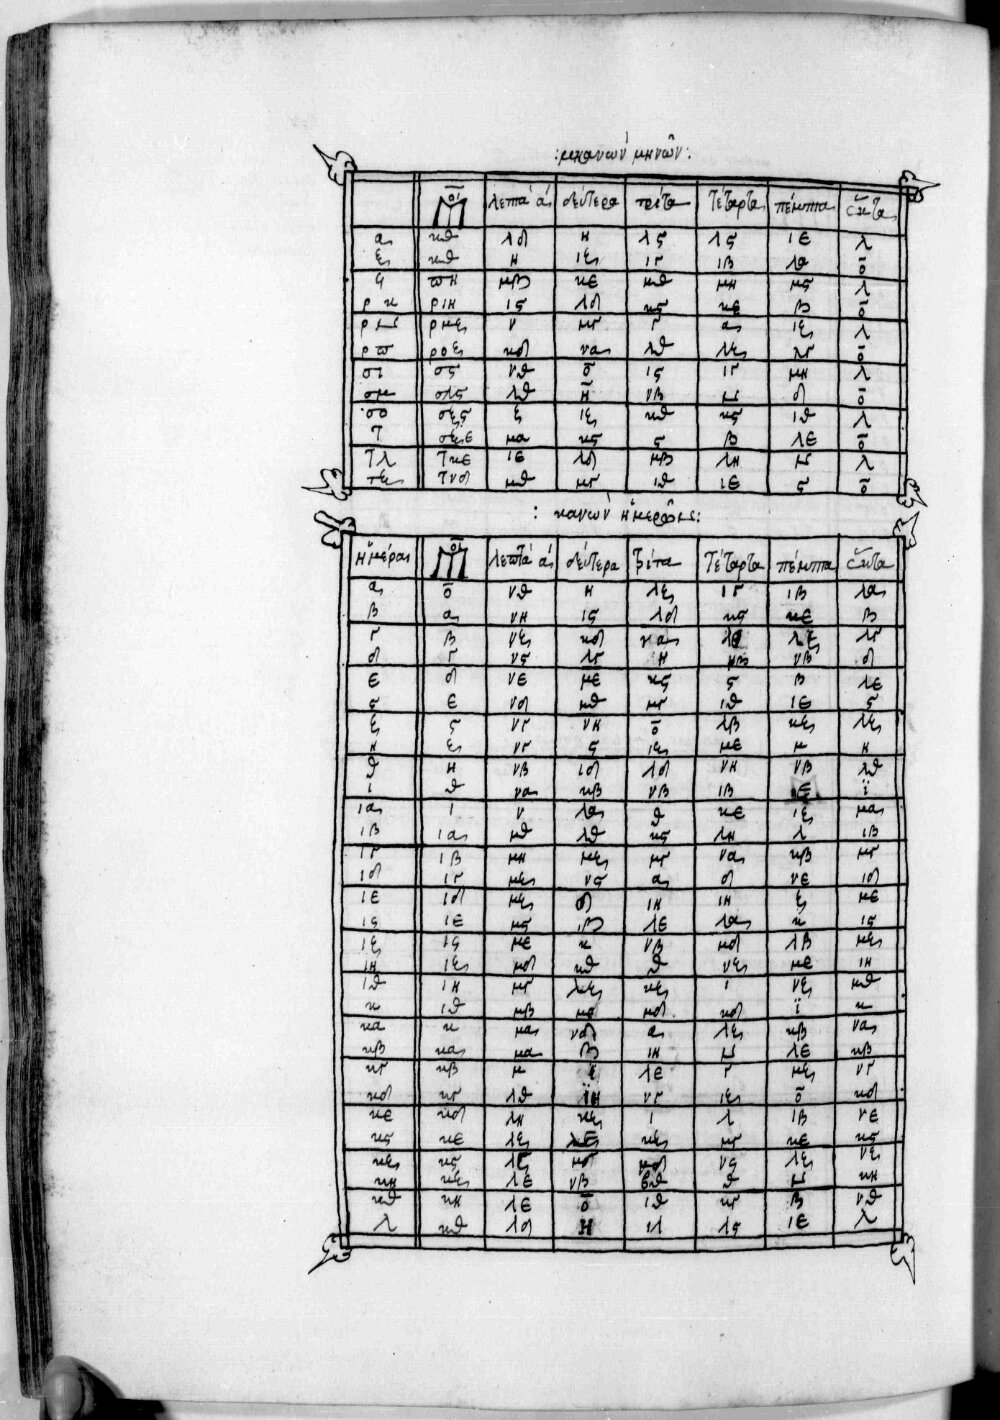 :κανων μηνῶν:
μοι λεπτὰ ά δεύτερα τρίτα τέταρτα πέμπτα ἕκτα
λ κθ λδ η λϛ λϛ ιε λ
ξ νθ η ιζ ιγ ιβ λα ō
ϟ πη μβ κε μθ μη μϛ λ
ρκ ριη ιϛ λδ κϛ κε β ō
ρν ρμζ ν μγ γ α ιζ λ
ρπ ροζ κδ να λθ λζ λγ ō
σι σϛ νθ ō ιϛ ιγ μη λ
σμ σλϛ λθ η νβ ν δ ō
σο σξϛ ζ ιζ κθ κϛ ιθ λ
τ σϟε μα κϛ ϛ β λε ō
τλ τκε ιε λδ μβ λη ν λ
τξ τνδ μθ μγ ιθ ιε ϛ ō
: κανων ἡμερῶν:
ἡμέραι μοι λεπτὰ ά δεύτερα τρίτα τέταρτα πέμπτα ἕκτα
α ō νθ η ιζ ιγ ιβ λα
β α νη ιϛ λδ κϛ κε β
γ β νζ κδ να λθ λζ λγ
δ γ νϛ λγ η νβ νβ δ
ε δ νε με κϛ ϛ β λε
ϛ ε νδ μθ μγ ιθ ιε ϛ
ζ ϛ νγ νη ō λβ κζ λζ
η ζ νγ ϛ ιζ με μ η
θ η νβ ιδ λδ νη νβ λθ
ι θ να κβ νβ ιβ ε ϊ
ια ι ν λα θ κε ιζ μα
ιβ ια μθ λθ κϛ λη λ ιβ
ιγ ιβ μη μζ μγ να κβ μγ
ιδ ιγ μζ νϛ α δ νε ιδ
ιε ιδ μζ δ ιη ιη ζ με
ιϛ ιε μϛ ιβ λε λα κ ιϛ
ιζ ιϛ με κ νβ μδ λβ μζ
ιη ιζ μδ κθ θ νζ με ιη
ιθ ιη μγ λζ κζ ι νζ μθ
κ ιθ μβ με μδ κδ ϊ κ
κα κ μα νδ α λζ κβ να
κβ κα μα β ιη ν λε κβ
κγ κβ μ ι λε γ μζ νγ
κδ κγ λθ ιη νγ ιζ ō κδ
κε κδ λη κζ ι λ ιβ νε
κϛ κε λζ λε κζ μγ κε κϛ
κζ κϛ λϛ μγ μδ νϛ λζ νζ
κη κζ λε νβ βθ θ ν κη
κθ κη λε ō ιθ κγ β νθ
λ κθ λδ η ιλ λϛ ιε λ